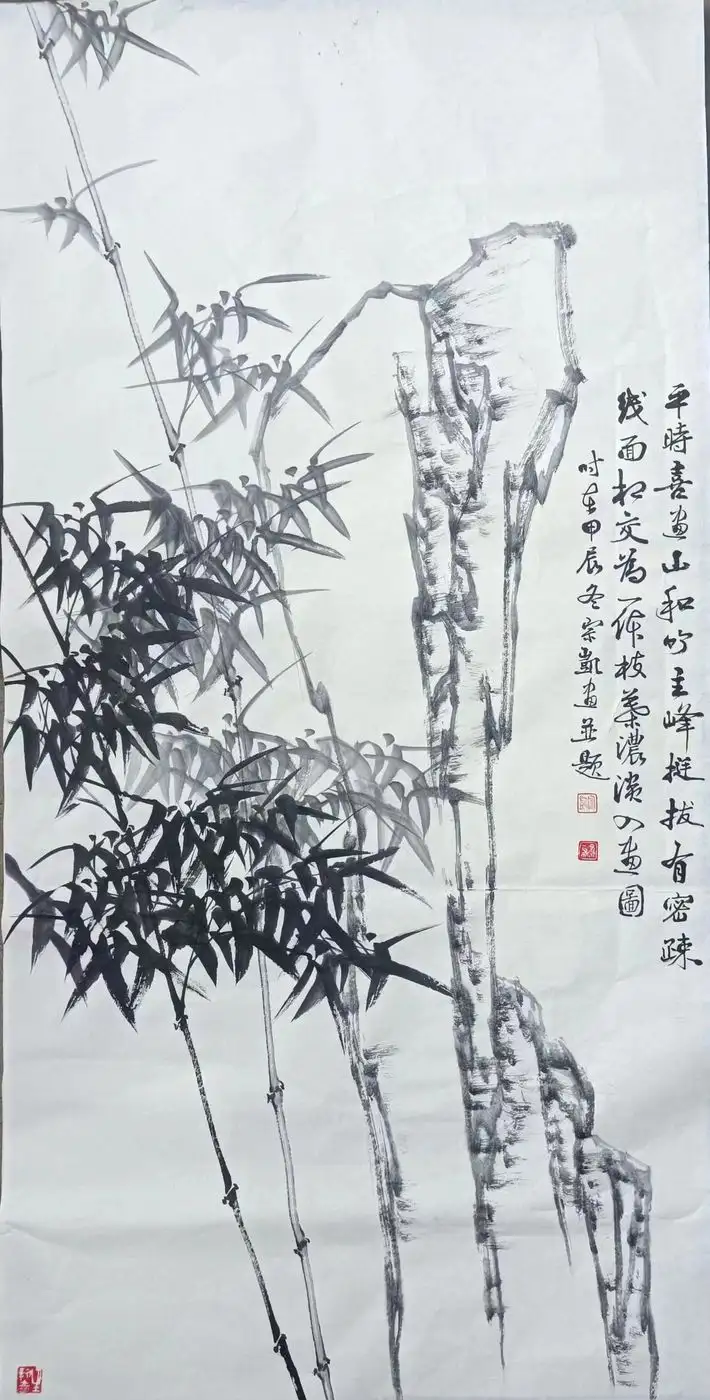 平時喜画山和竹主峰挺拔有密疎
线面相交为一体枝葉濃淡入画圖
时在甲辰冬宗凱画並题